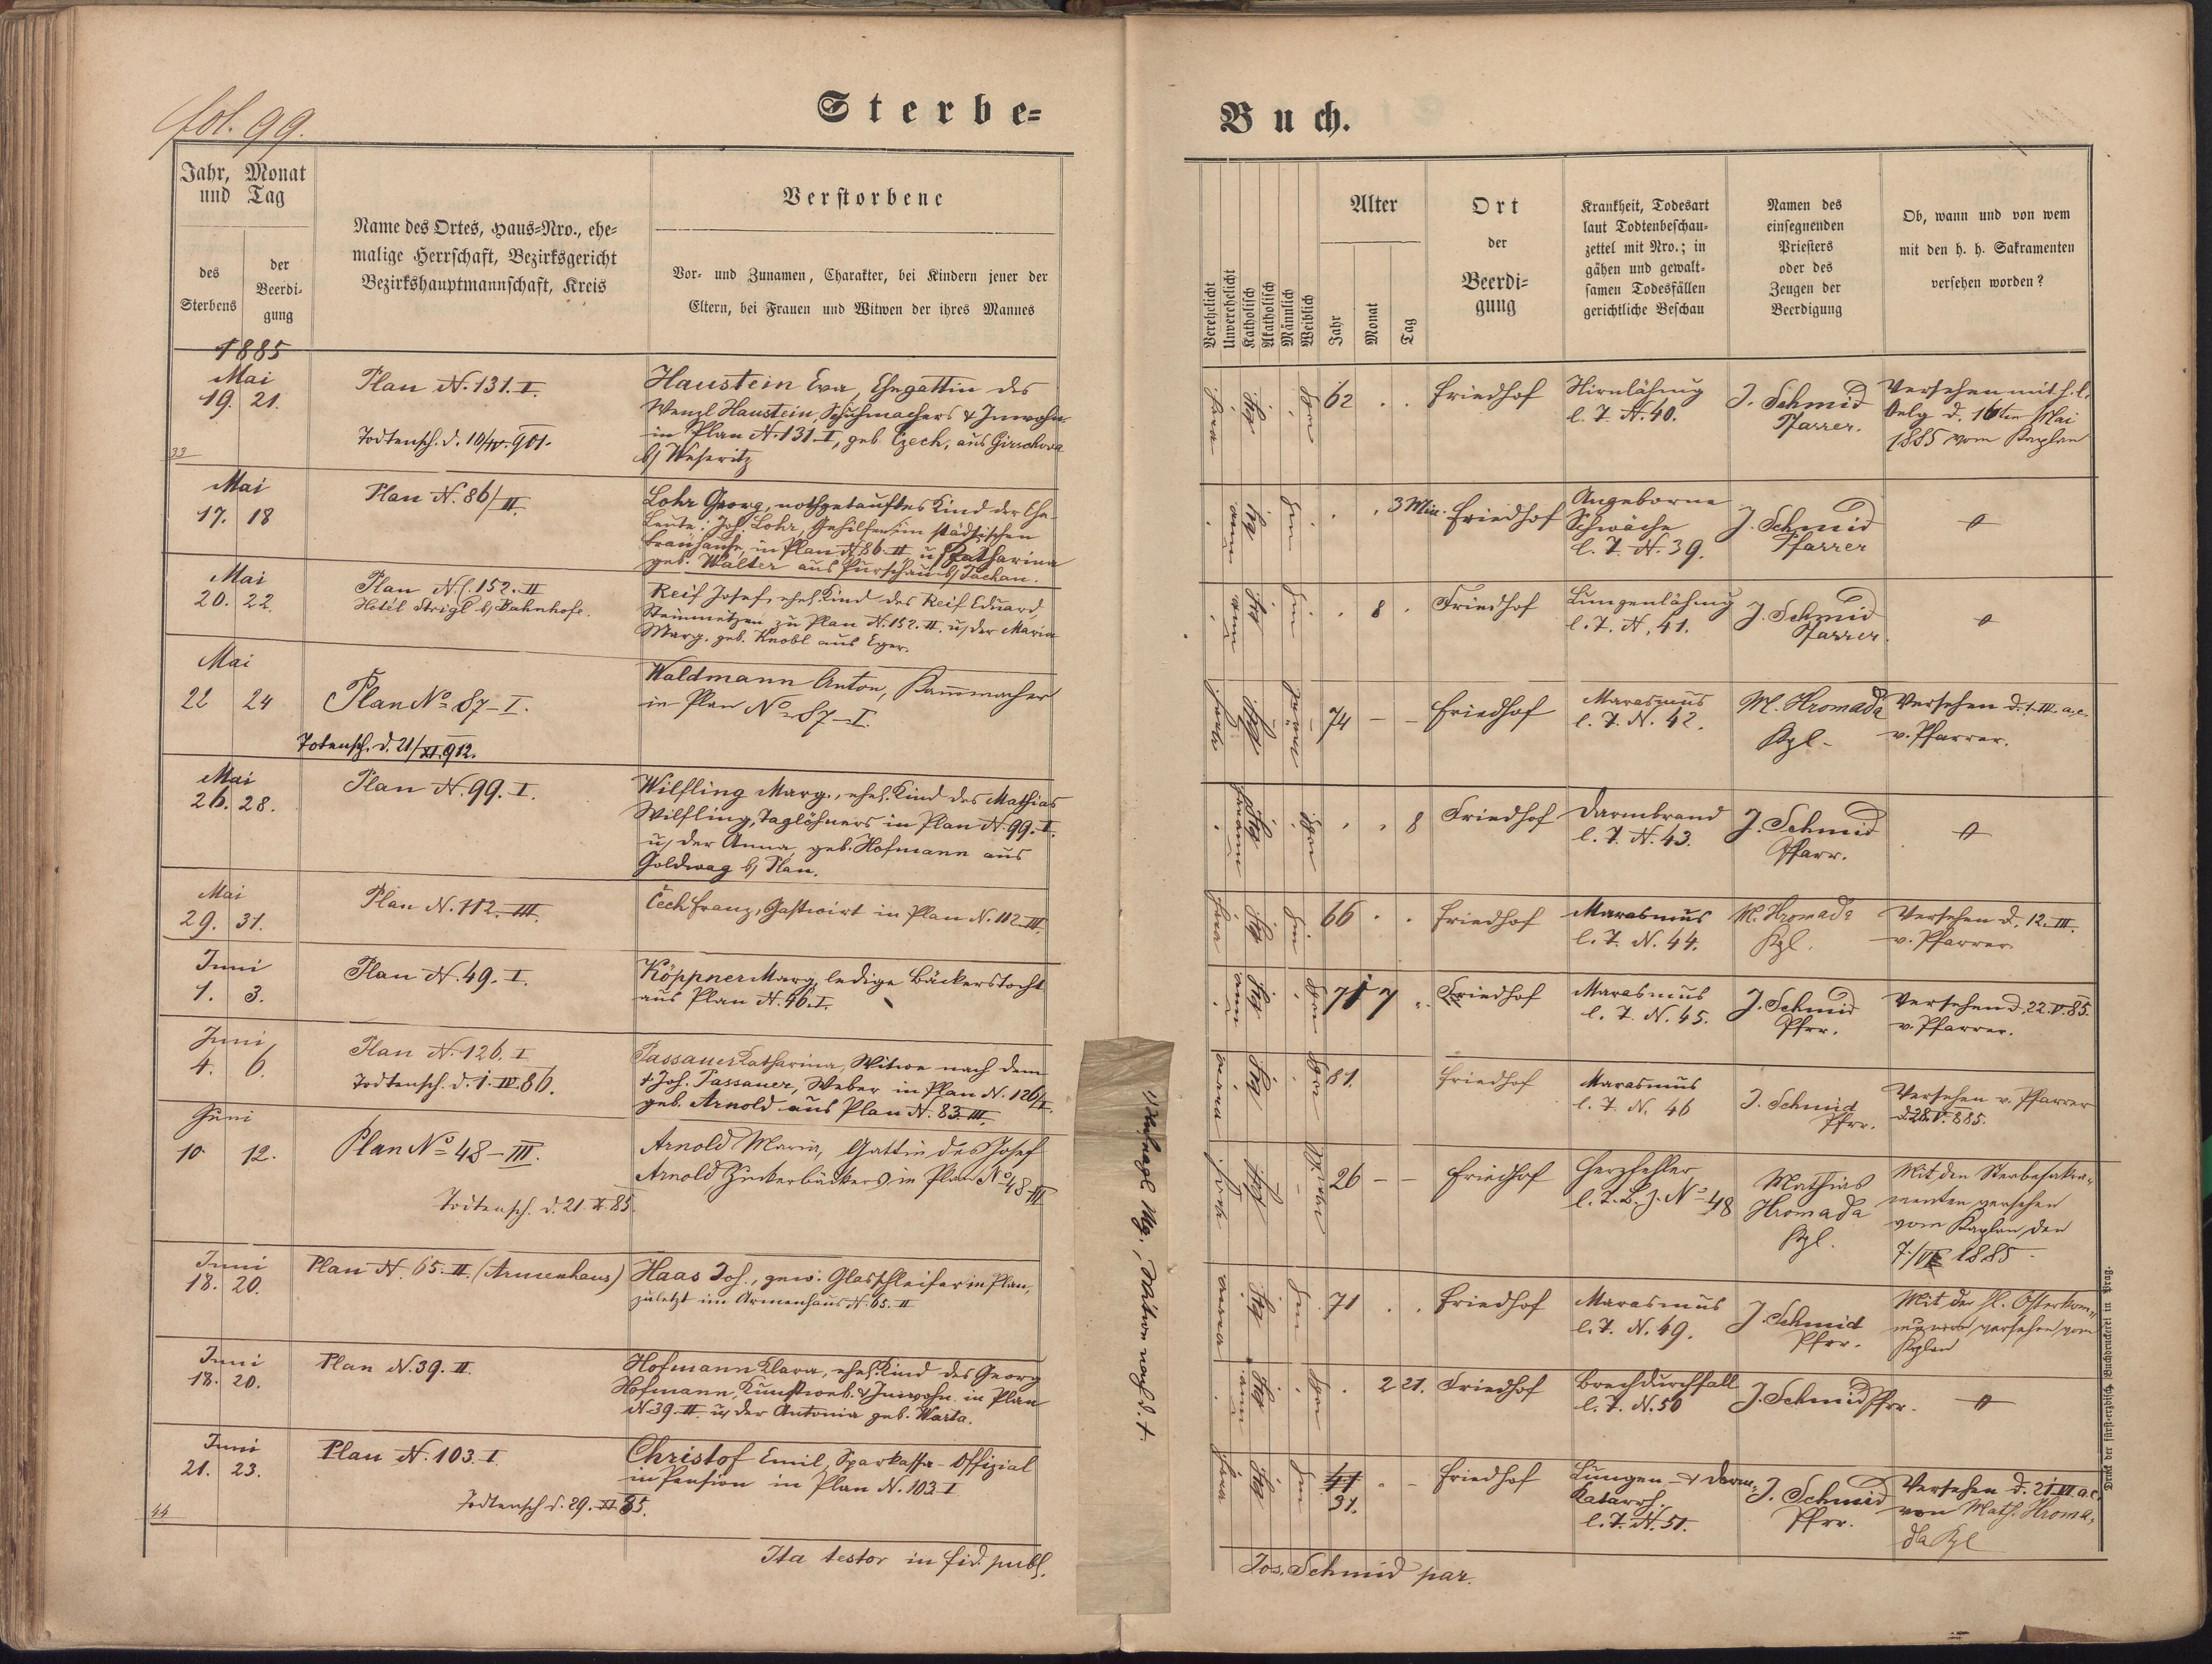 fol. 99.
Sterbe=
Jahr, Monat
und Tag
des
Sterbens
der
Beerdi-
gung
Name des Ortes, Haus=Nro., ehe=
malige Herrschaft, Bezirksgericht
Bezirkshauptmannschaft, Kreis
Verstorbene
Vor- und Zunamen, Charakter, bei Kindern jener der
Eltern, bei Frauen und Witwen der ihres Mannes
1885
Mai
19. 21.
Plan N. 131. I.
Todtensch. d. 10/IV. 901.
33
Haustein Eva, Ehegattin des
Wenzl Haustein, Schuhmachers & Inwohn.
in Plan N. 131. I, geb. Czech, aus Girschowa
b/ Weseritz
Mai
17. 18
Plan N. 86/II.
Lohr Georg, nothgetauftes Kind der Ehe-
leute: Joh. Lohr, Gehilfen im städtischen
Brauhause, in Plan N. 86. II u. Katharina
geb. Walter aus Purschau b/ Tachau.
Mai
20. 22.
Plan N. 152. II
Hotél Strigl b/ Bahnhofe.
Reif Josef, ehel. Kind des Reif Eduard,
Steinmetzen zu Plan N. 152. II. u/ der Maria
Marg. geb. Knobl aus Eger.
Mai
22 24
Plan No 87-I.
Totensch. d. 21/XI. 912.
Waldmann Anton, Kammacher
in Plan No 87-I.
Mai
26. 28.
Plan N. 99. I.
Wilfling Marg., ehel. Kind des Mathias
Wilfling, Taglöhners in Plan N. 99. I.
u/ der Anna, geb. Hofmann aus
Goldwag b/ Plan.
Mai
29. 31.
Plan N. 112. III.
Čech Franz, Gastwirt in Plan N. 112. III.
Juni
1. 3.
Plan N. 49. I.
Köppner Marg. ledige Bäckerstocht.
aus Plan N. 46. I.
Juni
4. 6.
Plan N. 126. I
Todtensch. d. 1. IV. 86.
Passauer Katharina, Witwe nach dem
+ Joh. Passauer, Weber in Plan N. 126/I.
geb. Arnold aus Plan N. 83. III.
Juni
10. 12.
Plan No 48-III.
Todtensch. d. 21. X. 85.
Arnold Maria, Gattin des Josef
Arnold Zuckerbäckers in Plan No 48-III
Juni
18. 20.
Plan N. 65. II. (Armenhaus)
Haas Joh., gew. Glasschleifer in Plan,
zuletzt im Armenhaus N. 65. II
Juni
18. 20.
Plan N. 39. II.
Hofmann Klara, ehel. Kind des Georg
Hofmann, Kunstweb. & Inwohn. in Plan
N. 39. II. u/ der Antonia geb. Warta.
Juni
21. 23.
Plan N. 103. I
Todtensch. d. 29. XI. 85.
44
Christof Emil, Sparkassa-Offizial
in Pension in Plan N. 103. I
Ita testor in fid. publ.
, Witwe nach d. +
Buch.
Verehelicht
Unverehelicht
Katholisch
Akatholisch
Männlich
Weiblich
Alter
Jahr
Monat
Tag
Ort
der
Beerdi=
gung
Krankheit, Todesart
laut Todtenbeschau-
zettel mit Nro.; in
gähen und gewalt-
samen Todesfällen
gerichtliche Beschau
Namen des
einsegnenden
Priesters
oder des
Zeugen der
Beerdigung
Ob, wann und von wem
mit den h. h. Sakramenten
versehen worden?
62 . . Friedhof
Hirnlähmung
l. T. N. 40.
J. Schmid
Pfarrer.
Versehen mit h. l.
Oelg. d. 16ten Mai
1885 vom Kaplan
. . 3 Min. Friedhof
Angeborne
Schwäche
l. T. N. 39.
J. Schmid
Pfarrer
. 8 . Friedhof
Lungenlähmg
l. T. N. 41.
J. Schmid
Pfarrer.
74 - - Friedhof
Marasmus
l. T. N. 42.
M. Hromada
Kpl.
Versehen d. 1. III. a. c.
v. Pfarrer.
. . 8 Friedhof
Darmbrand
l. T. N. 43.
J. Schmid
Pfarr.
66 . . Friedhof
Marasmus
l. T. N. 44.
M. Hromada
Kpl.
Versehen d. 12. III.
v. Pfarrer.
71 7 . Friedhof
Marasmus
l. T. N. 45.
J. Schmid
Pfrr.
Versehen d. 22. V. 85.
v. Pfarrer.
81. Friedhof
Marasmus
l. T. N. 46
J. Schmid
Pfrr.
Versehen v. Pfarrer
d. 28. V. 885.
26 - - Friedhof
Herzfehler
l. T. B. z. No 48
Mathias
Hromada
Kpl.
Mit den Sterbesakra-
menten versehen
vom Kaplan den
7./VI 1885
71 . . Friedhof
Marasmus
l. T. N. 49.
J. Schmid
Pfrr.
Mit der hl. Osterkom-
versehen vom
Kaplan
. 2 21. Friedhof
Brechdurchfall
l. T. N. 50
J. Schmid Pfrr.
41
31. . - Friedhof
Lungen- & Darm-
Katarrh.
l. T. N. 51.
J. Schmid
Pfrr.
Versehen d. 21. VI. a. c.
von Math. Hroma-
da Kpl
Jos. Schmid par.
Druck der fürst-erzbisch. Buchdruckerei in Prag.